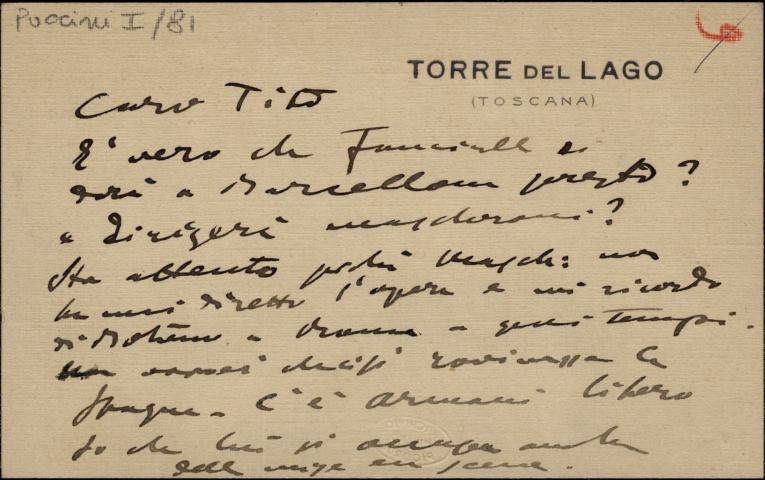 Puccini I/81
TORRE DEL LAGO
(TOSCANA)
Caro Tito
E' vero che Fanciulla si
darà a Barcellona presto?
e dirigerà Mascheroni?
Sta attento perchè Masch: non
ha mai diretto l'opera e mi ricordo
di Bohème a a tempi.
non vorrei che si rovinasse la
Spagna. C'è Armani libero
So che lui si occupa anche
della mise en scene.